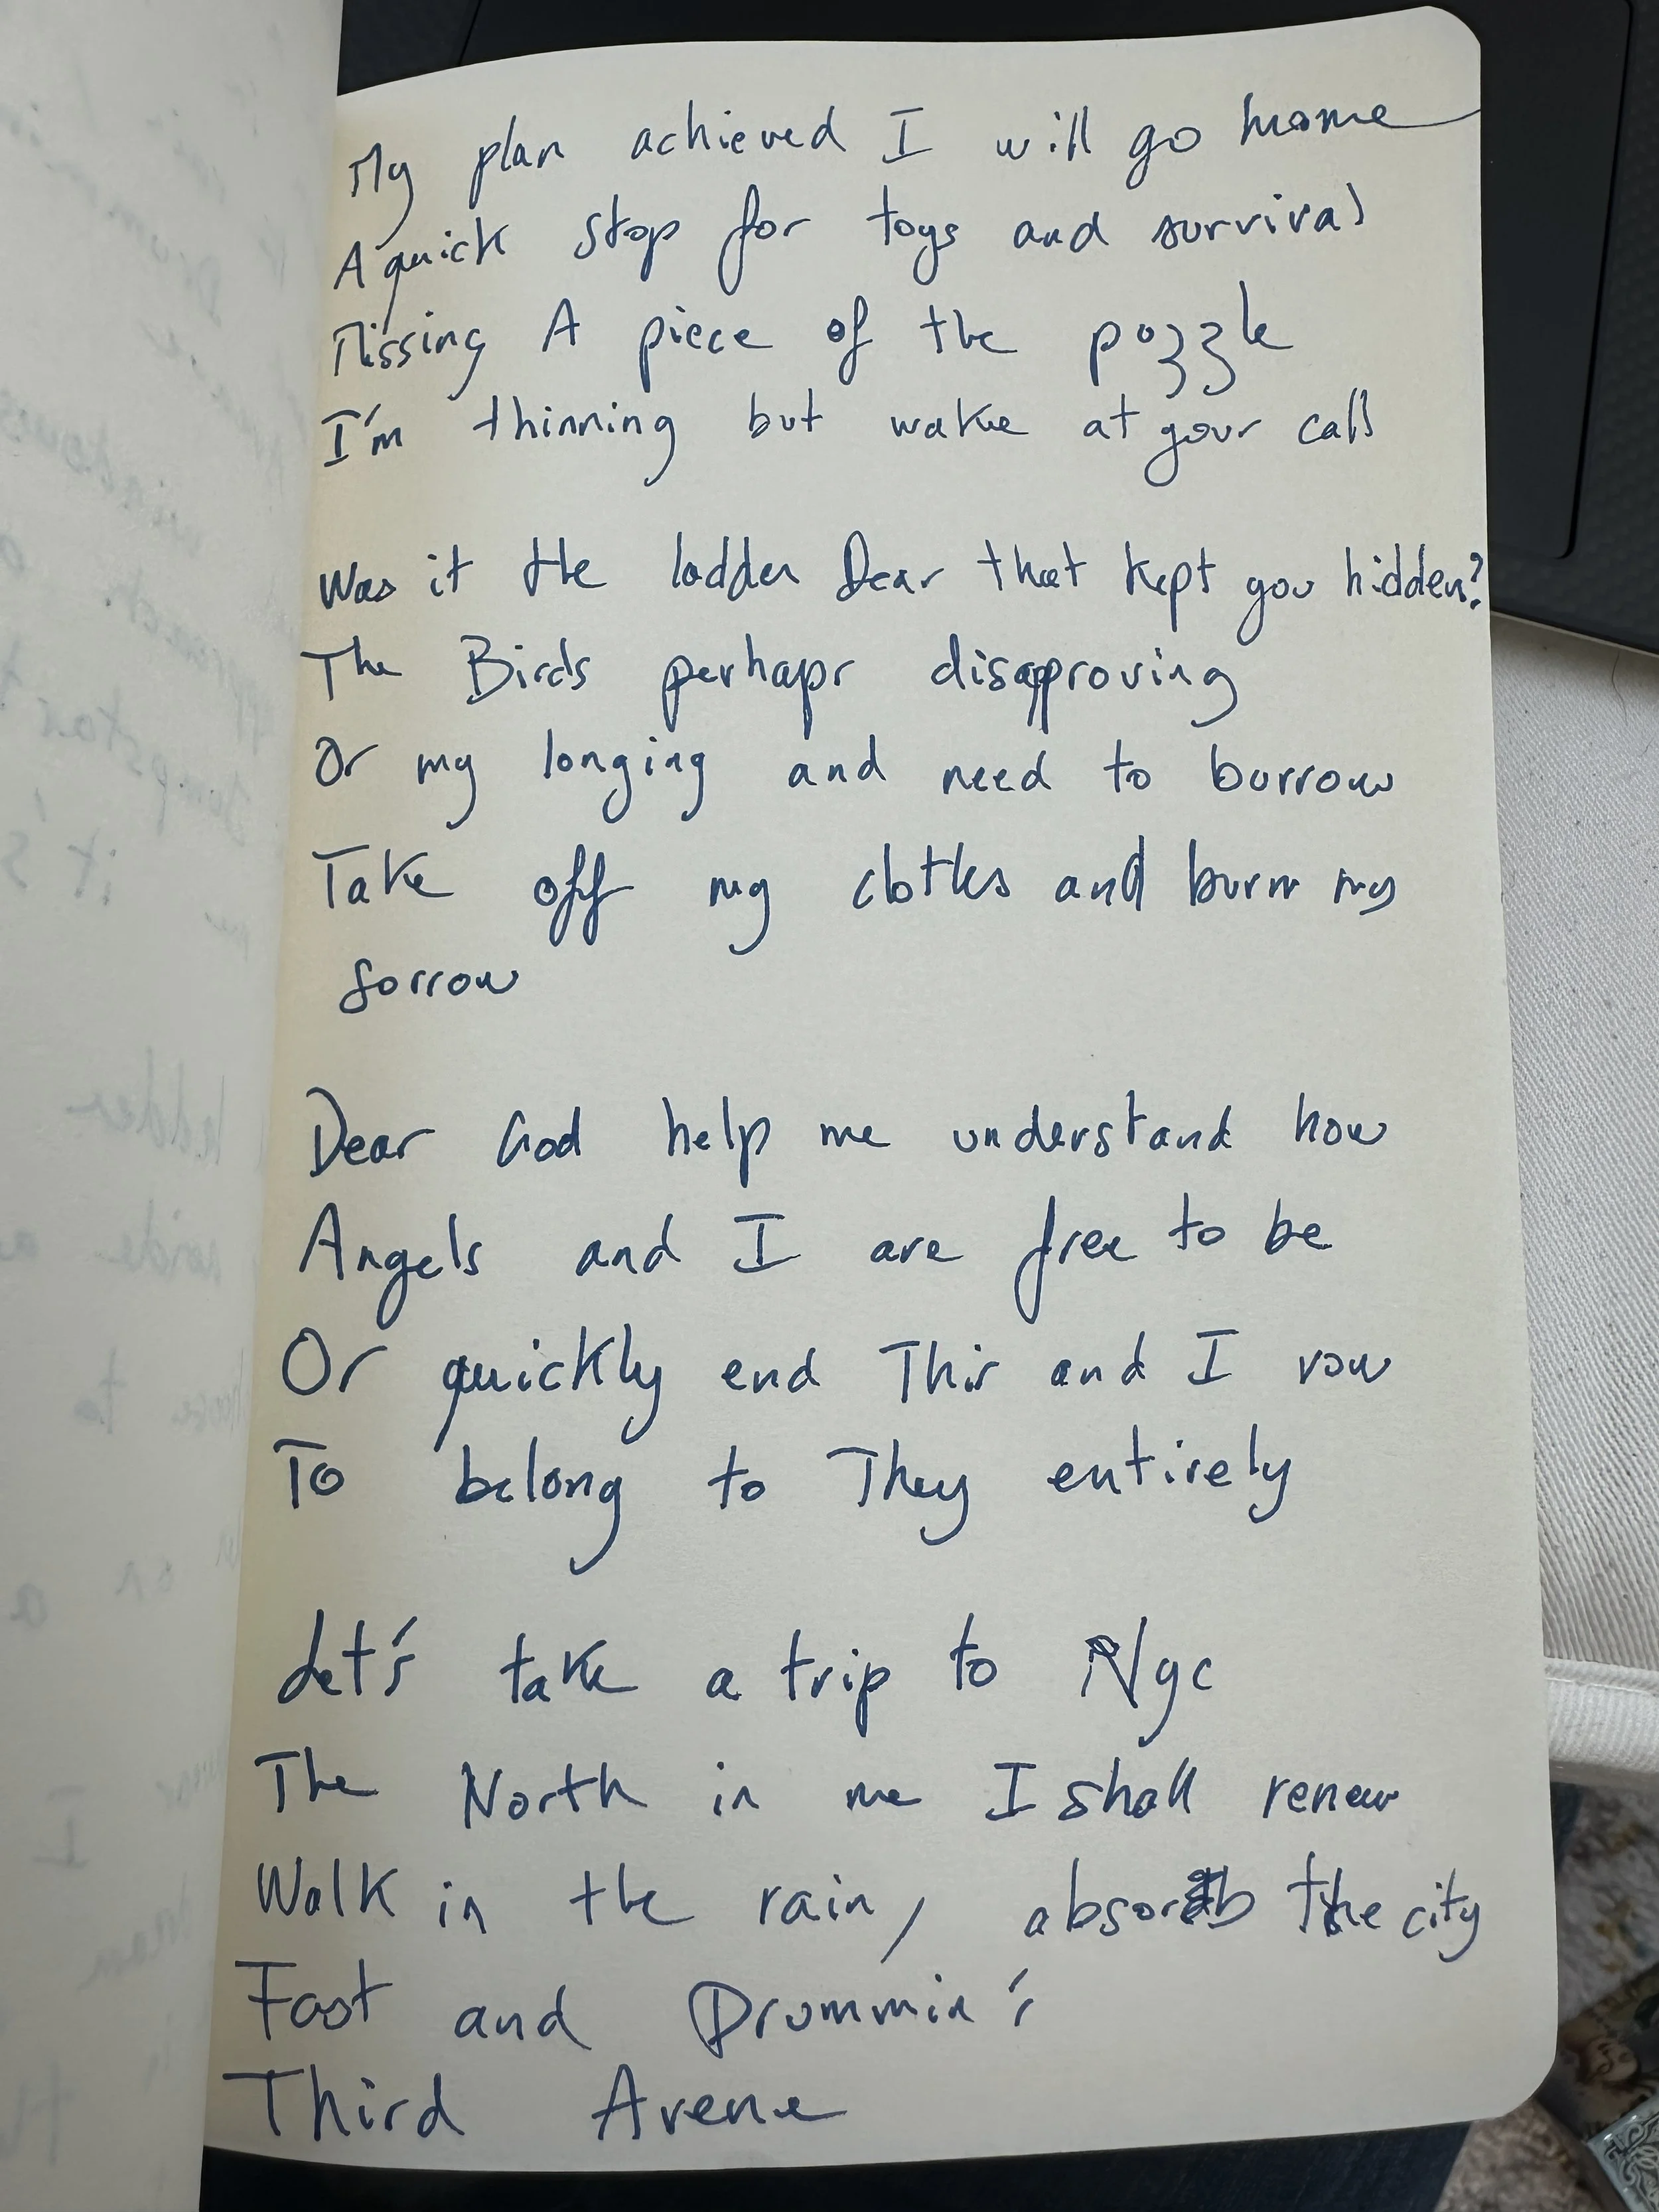 My plan achieved I will go home
A quick stop for toys and survival
Missing A piece of the puzzle
I'm thinning but wake at your call
Was it the ladder Dear that kept you hidden?
The Birds perhaps disapproving
Or my longing and need to burrow
Take off my clothes and burn my
sorrow
Dear God help me understand how
Angels and I are free to be
Or quickly end This and I vow
To belong to They entirely
Let's take a trip to Nyc
The North in me I shall renew
Walk in the rain, absorb the city
Fast and Drummin'
Third Avene